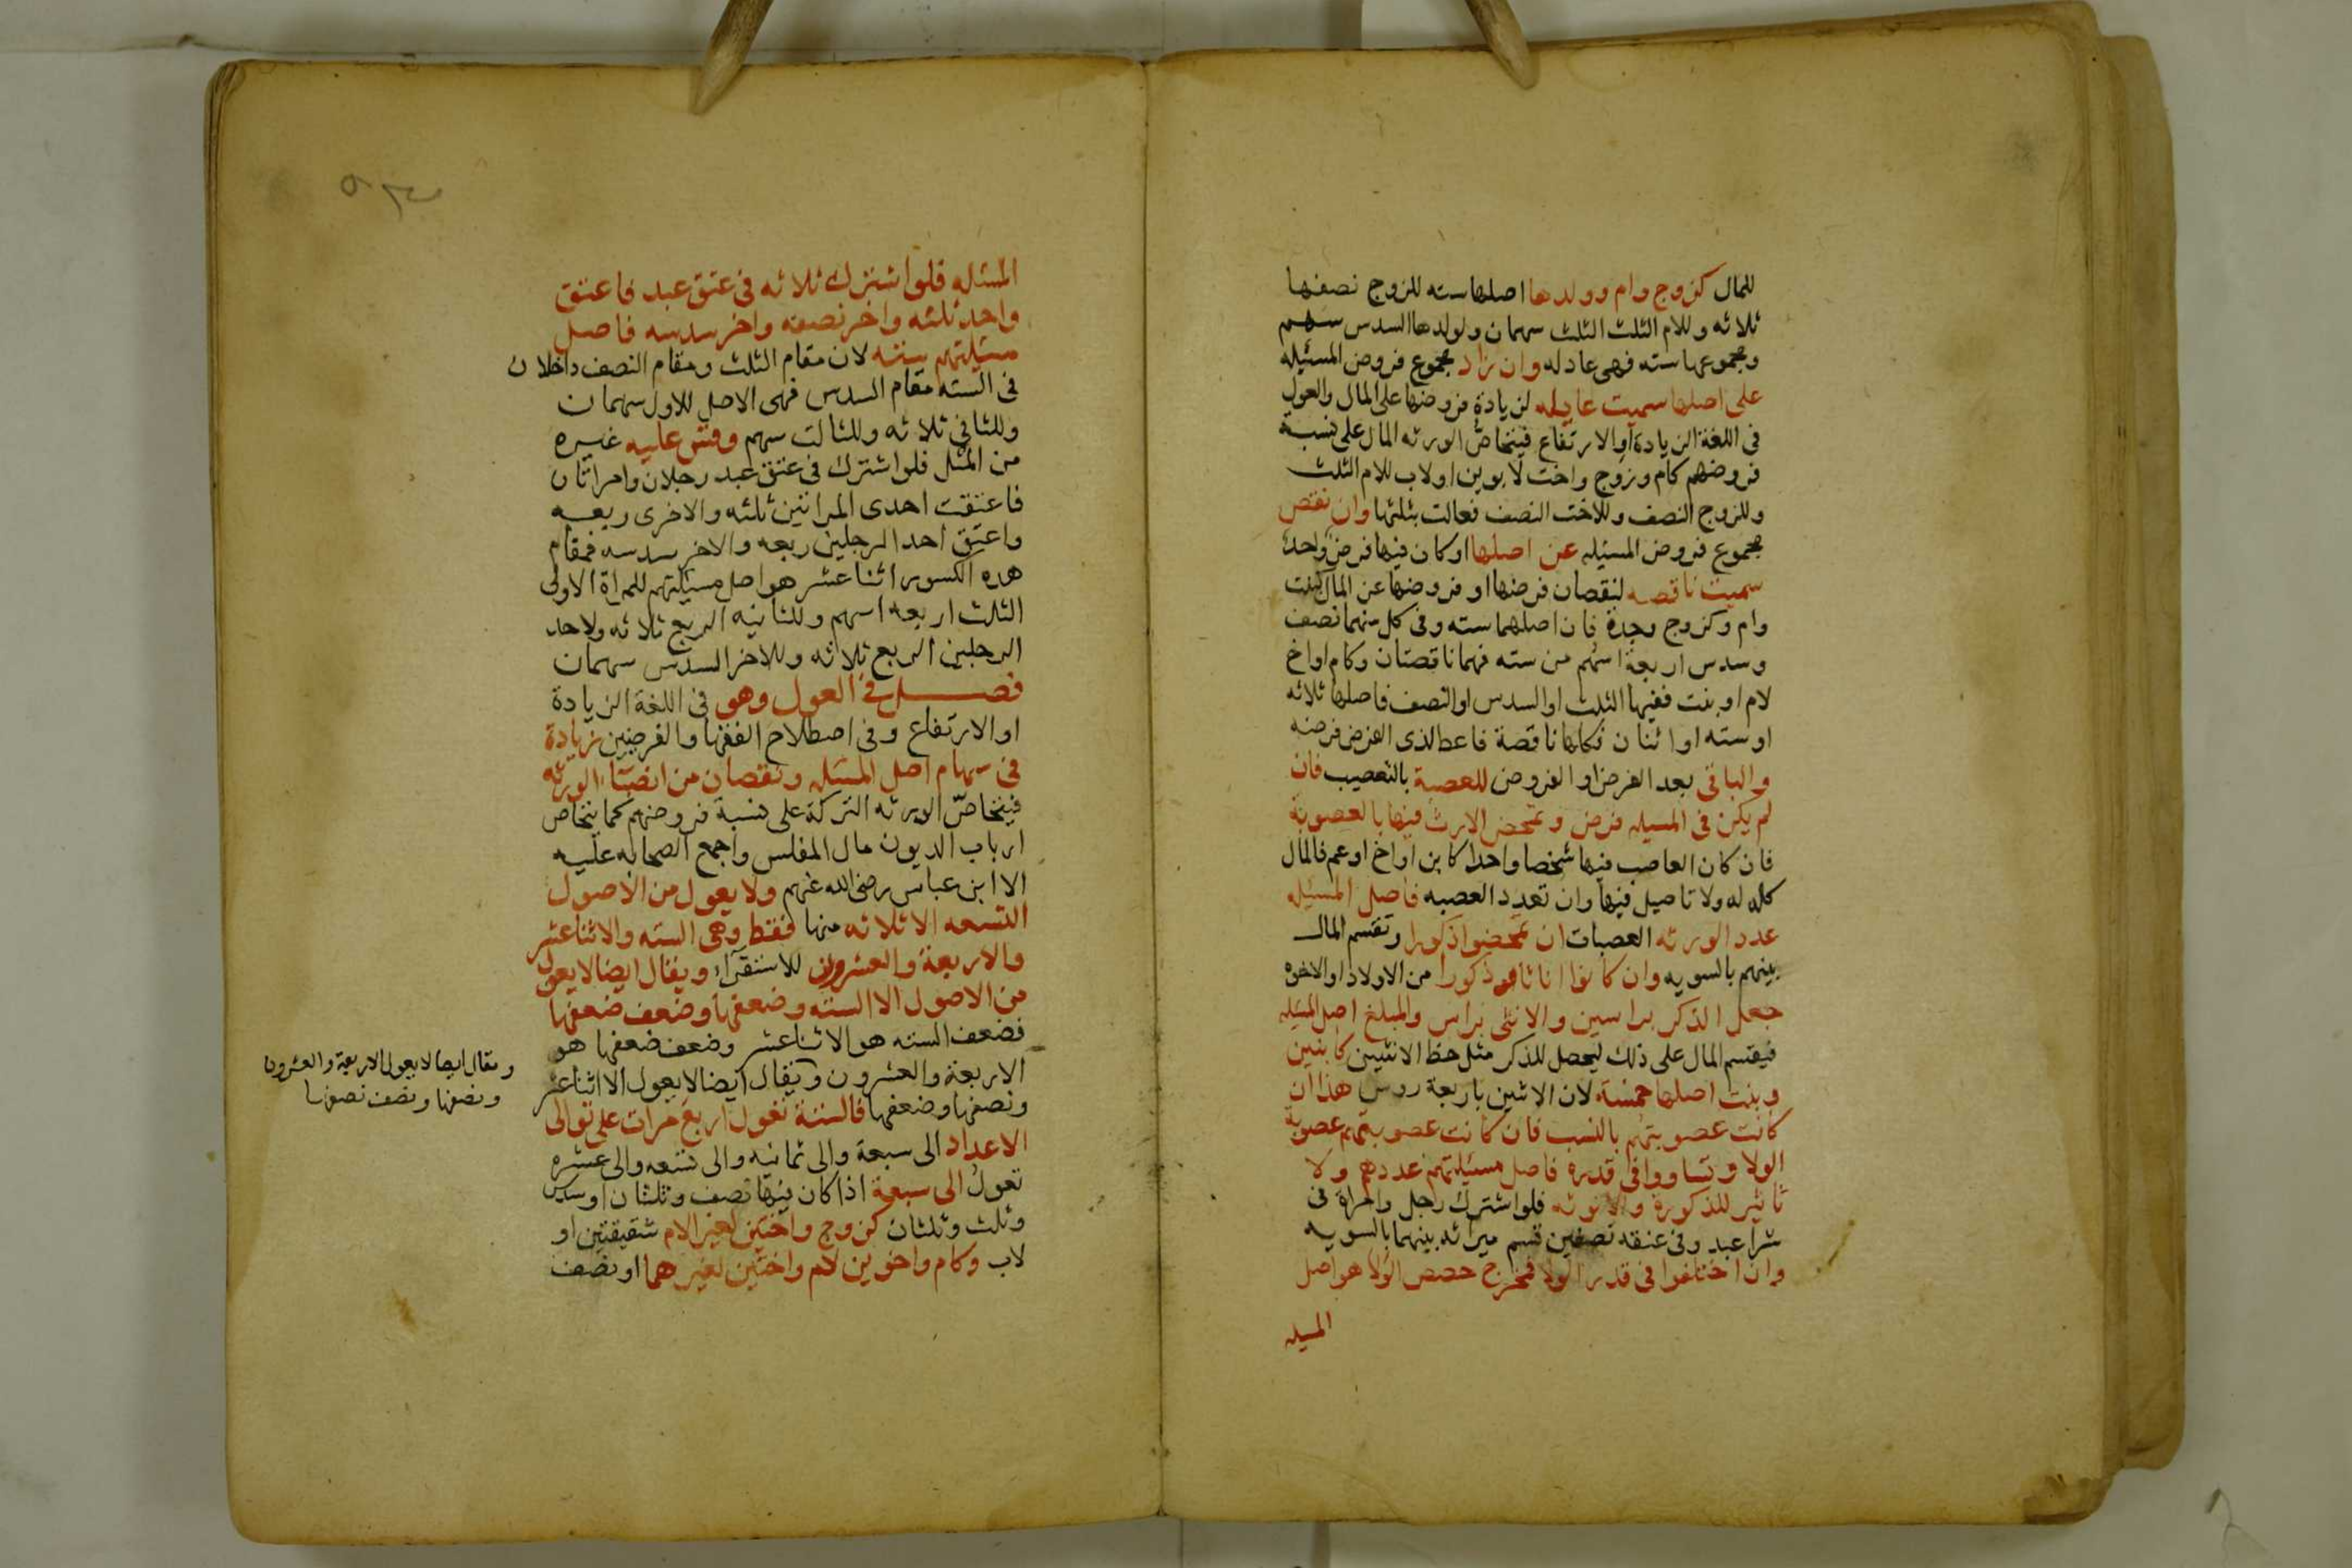 للمال كزوج وام وولدها اصلها سته للزوج نصفها
ثلاثه وللام الثلث الثلث سهمان ولولدها السدس سهم
ومجموعها سته فهى عادله وان زاد مجموع فروض المسئله
على اصلها سميت عايله لزيادة فروضها على المال والعول
فى اللغة الزيادة او الارتفاع فيتحاصّ الورثه المال على نسبة
فروضهم كام وزوج واخت لابوين او لاب للام الثلث
وللزوج النصف وللاخت النصف فعالت بثلثها وان نقص
مجموع فروض المسئله عن اصلها او كان فيها فرض واحد
سميت ناقصه لنقصان فرضها او فروضها عن المال كبنت
وام وكزوج وجدة فان اصلهما سته وفى كل منهما نصف
وسدس اربعة اسهم من سته فهما ناقصتان وكام او اخ
لام او بنت ففيها الثلث او السدس او النصف فاصلها ثلاثه
او سته او اثنان فكلها ناقصة فاعط لذى الفرض فرضه
والباقى بعد الفرض او الفروض للعصبة بالتعصيب فان
لم يكن فى المسيله فرض وتمحض الارث فيها بالعصوبة
فان كان العاصب فيها شخصا واحدا كابن او اخ او عم فالمال
كله له ولا تاصيل فيها وان تعدد العصبه فاصل المسئله
عدد الورثه العصبات ان تمحضوا ذكورا وتقسم المال
بينهم بالسويه وان كانوا اناثا وذكورا من الاولاد او الاخوه
جعل الذكر براسين والانثى براس والمبلغ اصل المسئله
فيقتسم المال على ذلك ليحصل للذكر مثل حظ الانثيين كابنين
وبنت اصلها خمسة لان الاثنين باربعة روس هذا ان
كانت عصوبتهم بالنسب فان كانت عصوبتهم عصوبة
الولا وتساووا فى قدره فاصل مسئلتهم عددهم ولا
تاثير للذكورة والانوثه فلو اشترك رجل وامراة فى
شرا عبد وفى عتقه نصفين قسم ميراثه بينهما بالسويه
وان اختلفوا فى قدر الولا فمخرج حصص الولا هو اصل
المسيله
المسئله فلو اشترك ثلاثه فى عتق عبد فاعتق
واحد ثلثه واخر نصفه واخر سدسه فاصل
مسئلتهم سته لان مقام الثلث ومقام النصف داخلان
فى السته مقام السدس فهى الاصل للاول سهمان
وللثانى ثلاثه وللثالث سهم وقس عليه غيره
من المثل فلو اشترك فى عتق عبد رجلان وامراتان
فاعتقت احدى المراتين ثلثه والاخرى ربعه
واعتق احد الرجلين ربعه والاخر سدسه فمقام
هذه الكسور اثنا عشر هو اصل مسئلتهم للمراة الاولى
الثلث اربعه اسهم وللثانيه الربع ثلاثه ولاحد
الرجلين الربع ثلاثه وللاخر السدس سهمان
فصل فى العول وهو فى اللغة الزيادة
او الارتفاع وفى اصطلاح الفقها والفرضيين زيادة
فى سهام اصل المسئله ونقصان من انصباء الورثه
فيتحاصّ الورثه التركة على نسبة فروضهم كما يتحاص
ارباب الديون مال المفلس واجمع الصحابه عليه
الا ابن عباس رضى الله عنهم ولا يعول من الاصول
التسعه الا ثلاثه منها فقط وهى السته والاثنا عشر
والاربعة والعشرون للاستقراء ويقال ايضا لا يعول
من الاصول الا السته وضعفها وضعف ضعفها
فضعف السته هو الاثنا عشر وضعف ضعفها هو
الاربعة والعشرون ويقال ايضا لا يعول الا اثنا عشر
ونصفها وضعفها فالستة تعول اربع مرات على توالى
الاعداد الى سبعة والى ثمانيه والى تسعه والى عشره
تعول الى سبعة اذا كان فيها نصف وثلثان او سدس
وثلث وثلثان كزوج واختين لغير الام شقيقتين او
لاب وكام واخوين لام واختين لغيرهما او نصف
ويقال ايضا لا يعول الا الاربعة والعشرون
ونصفها ونصف نصفها